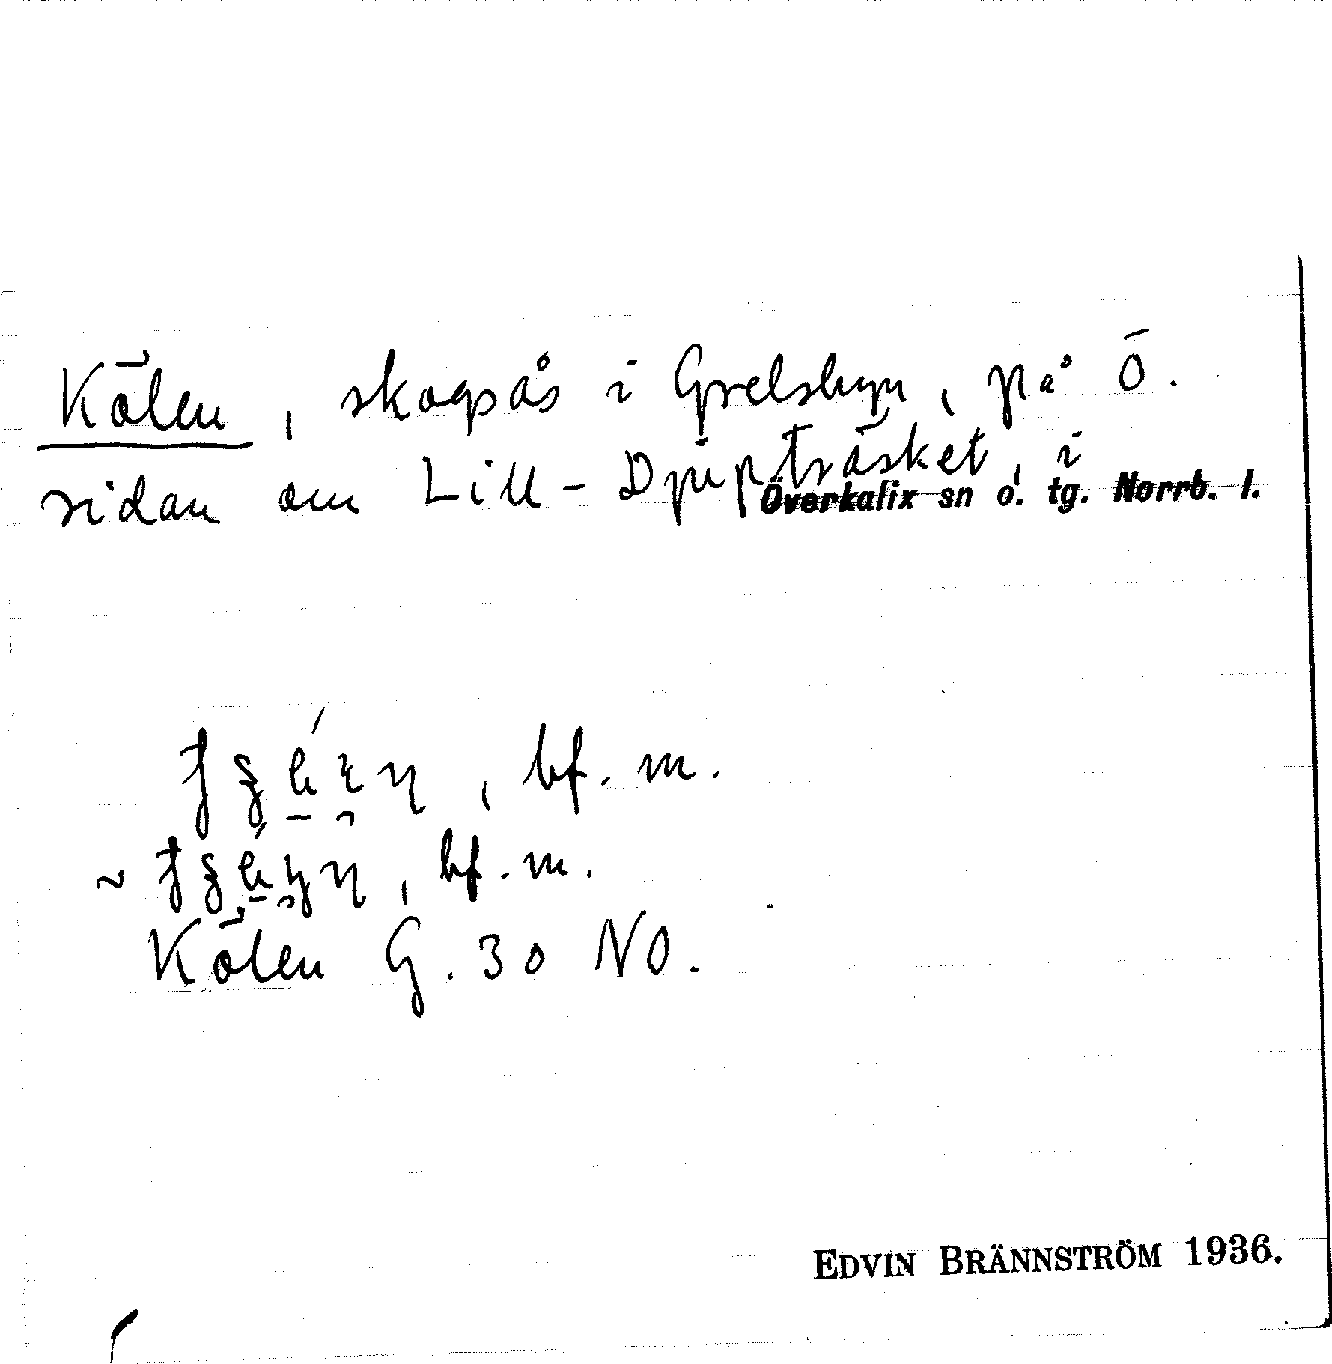 Kölen, skogsås i Grelsbyn, på Ö.
sidan om Lill-Djupträsket, i
Överkalix sn o. tg. Norrb. l.
, bf. m.
~ , bf. m.
Kölen G. 30 NO.
EDVIN BRÄNNSTRÖM 1936.